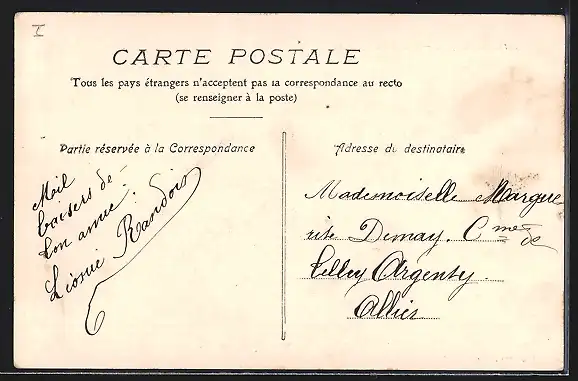 I
CARTE POSTALE
Tous les pays étrangers n'acceptent pas la correspondance au recto
(se renseigner à la poste)
Partie réservée à la Correspondance
Adresse du destinataire
Mil
baisers de
ton amie
Randoin
Mademoiselle Margue
rite Demay. Cme de
Argenty
Allier